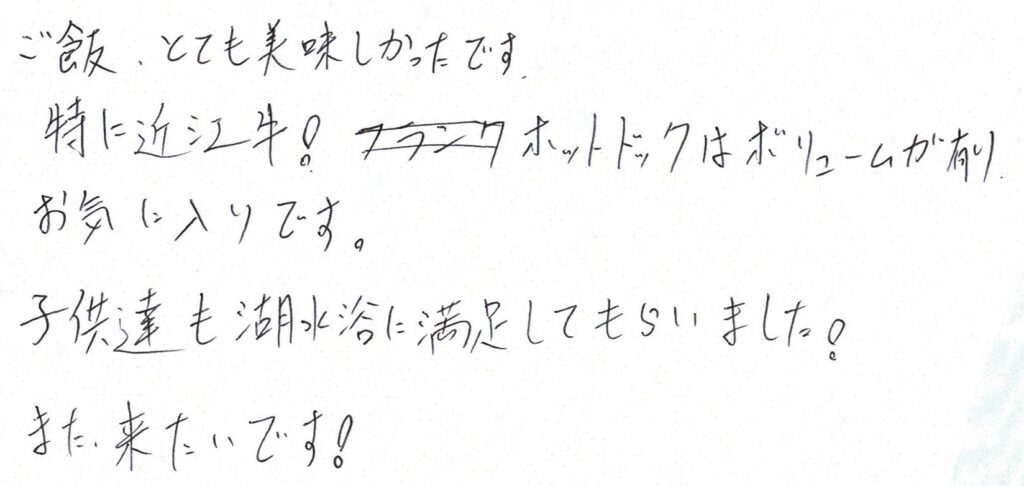 ご飯、とても美味しかったです.
特に近江牛! フランク ホットドックはボリュームが有り.
お気に入りです。
子供達も湖水浴に満足してもらいました!
また、来たいです!